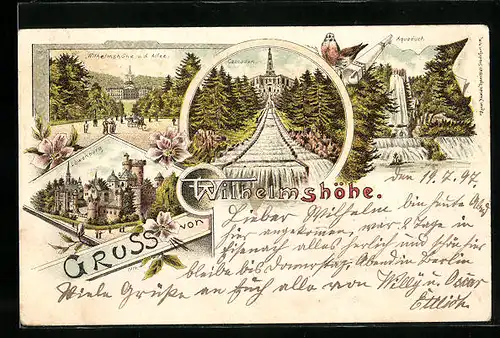 Wilhelmshöhe v. d. Allee.
Cascaden.
Aquaduct.
Löwenburg.
Gruss von
Wilhelmshöhe.
den 19.7.97.
Lieber Wilhelm bin heute
hier angekommen, war 2 Tage in
Eisenach alles herlich und schön hier
bleibe bis Donnerstag, Abend in Berlin
Viele Grüße an Euch alle von Willy u. Oscar
Ettlich